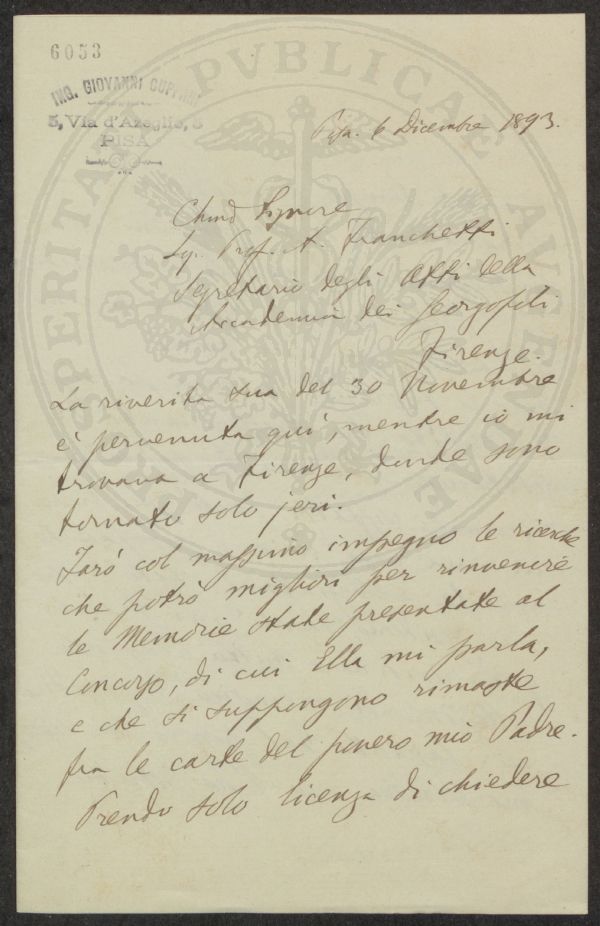 6053
ING. GIOVANNI CUPPARI
5, Via d'Azeglio, 5
PISA
PROSPERITATI PVBLICAE AVGENDAE
Pisa. 6 Dicembre 1893.
Chmo Signore
Sig. Prof. A. Franchetti
Segretario degli Atti della
Accademia dei Georgofili
Firenze.
La riverita sua del 30 Novembre
è pervenuta quì, mentre io mi
trovava a Firenze, donde sono
tornato solo jeri.
Farò col massimo impegno le ricerche
che potrò migliori per rinvenire
le Memorie state presentate al
Concorso, di cui Ella mi parla,
e che si suppongono rimaste
fra le carte del povero mio Padre.
Prendo solo licenza di chiedere